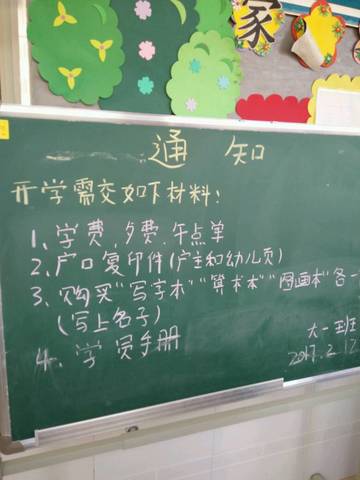 家
通 知
开学需交如下材料:
1、学费,夕费,午点单
2、户口复印件(户主和幼儿页)
3、购买"写字本""算术本""图画本"各一
(写上名子)
4、学员手册
大一班
2017.2.12